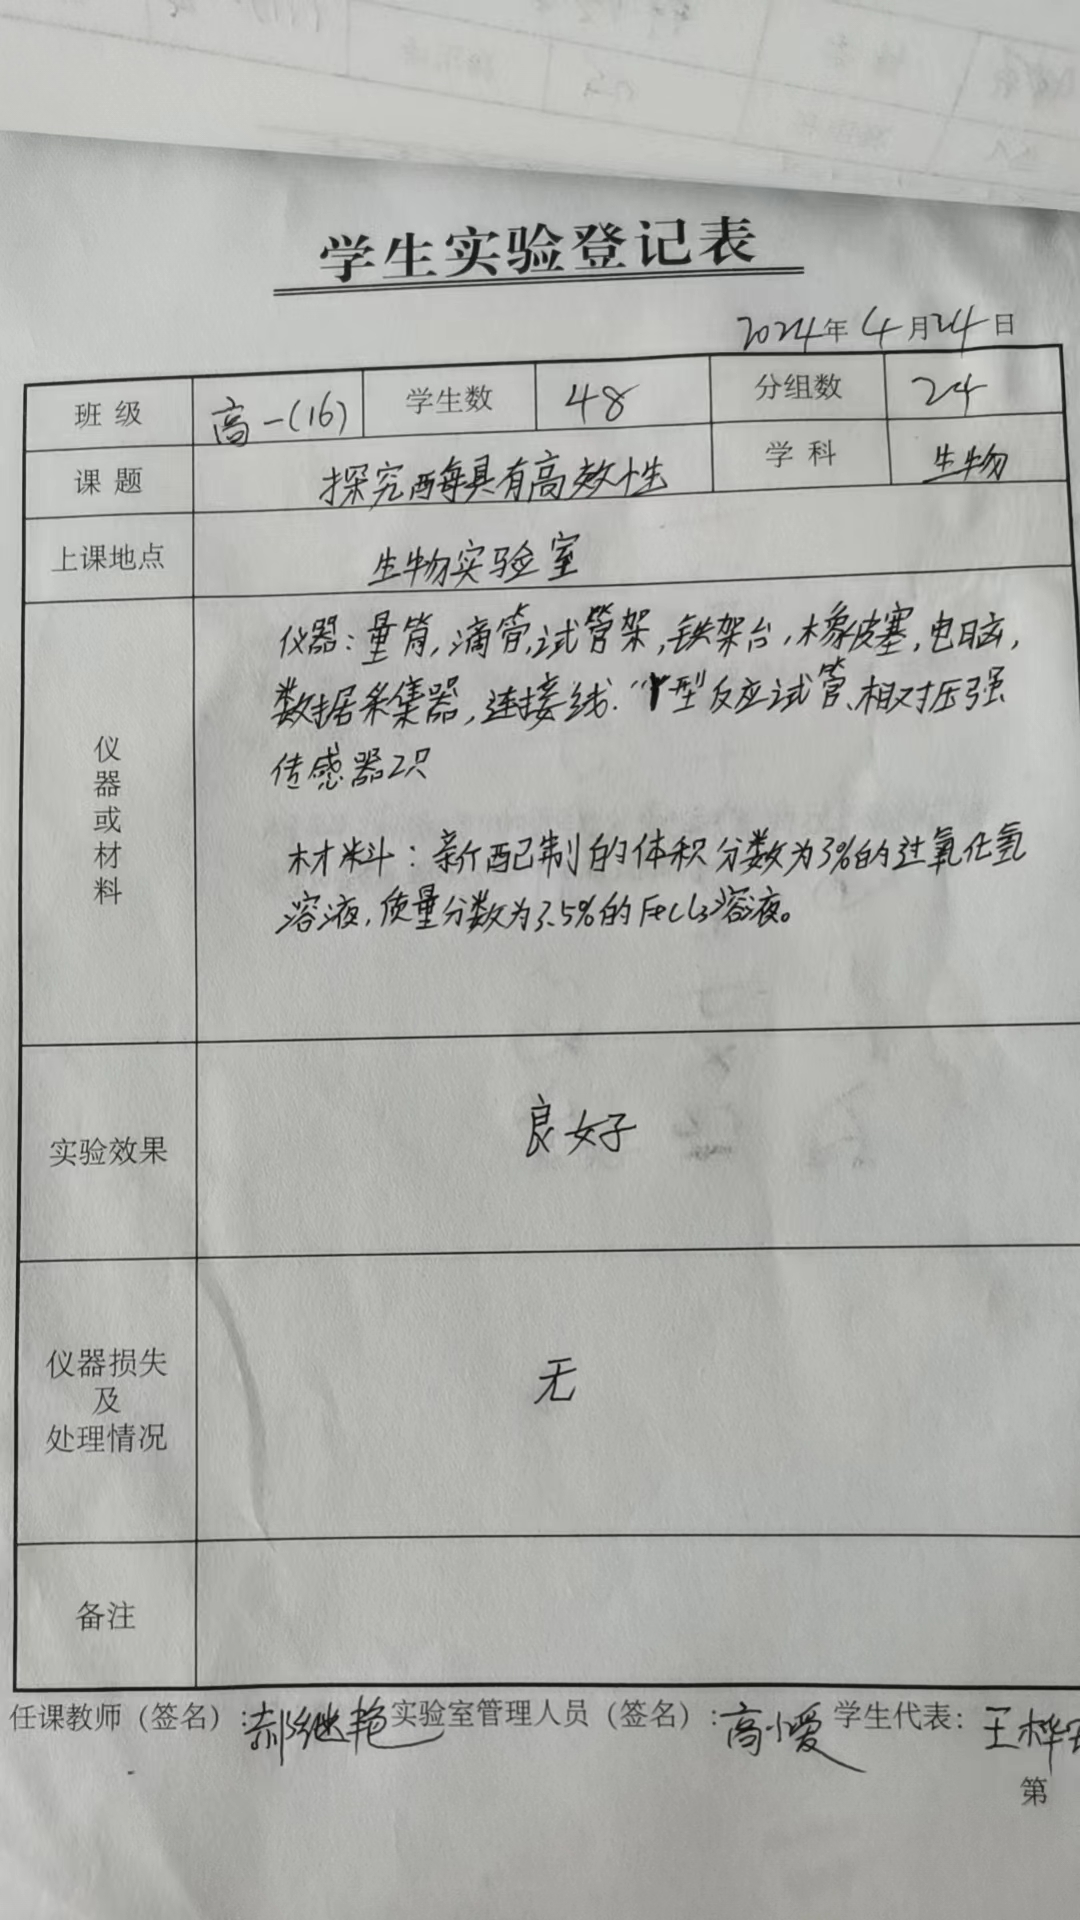 学生实验登记表
2024年4月24日
班级 高一(16) 学生数 48 分组数 24
课题 探究酶具有高效性 学科 生物
上课地点 生物实验室
仪器或材料
仪器:量筒,滴管,试管架,铁架台,橡皮塞,电脑,
数据采集器,连接线."Y"型反应试管、相对压强
传感器2只
材料:新配制的体积分数为3%的过氧化氢
溶液,质量分数为3.5%的FeCl3溶液。
实验效果 良好
仪器损失及处理情况 无
备注
任课教师(签名):郝继艳 实验室管理人员(签名):高小爱 学生代表:王桦
第